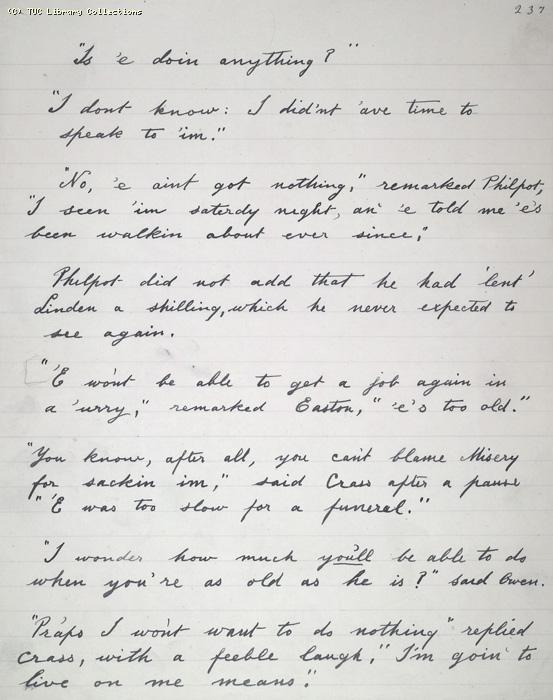 (C) TUC Library Collections
237
"Is 'e doin anything?"
"I dont know: I did'nt 'ave time to
speak to 'im."
"No, 'e aint got nothing," remarked Philpot,
"I seen 'im saterdy night, an' 'e told me 'e's
been walkin about ever since,"
Philpot did not add that he had 'lent'
Linden a shilling, which he never expected to
see again.
"'E wont be able to get a job again in
a 'urry," remarked Easton, "'e's too old."
"You know, after all, you cant blame Misery
for sackin im," said Crass after a pause
"'E was too slow for a funeral."
"I wonder how much you'll be able to do
when you're as old as he is?" said Owen.
"Praps I wont want to do nothing" replied
Crass, with a feeble laugh," I'm goin' to
live on me means".